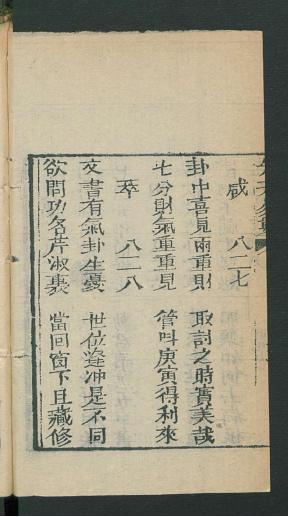 咸 八二七
卦中喜見兩重財 取討之時實美哉
七分財氣重重見 管呌庚寅得利來
萃 八二八
文書有氣卦生憂 世位逢冲是不同
欲問功名芹淑裏 當回窗下且藏修